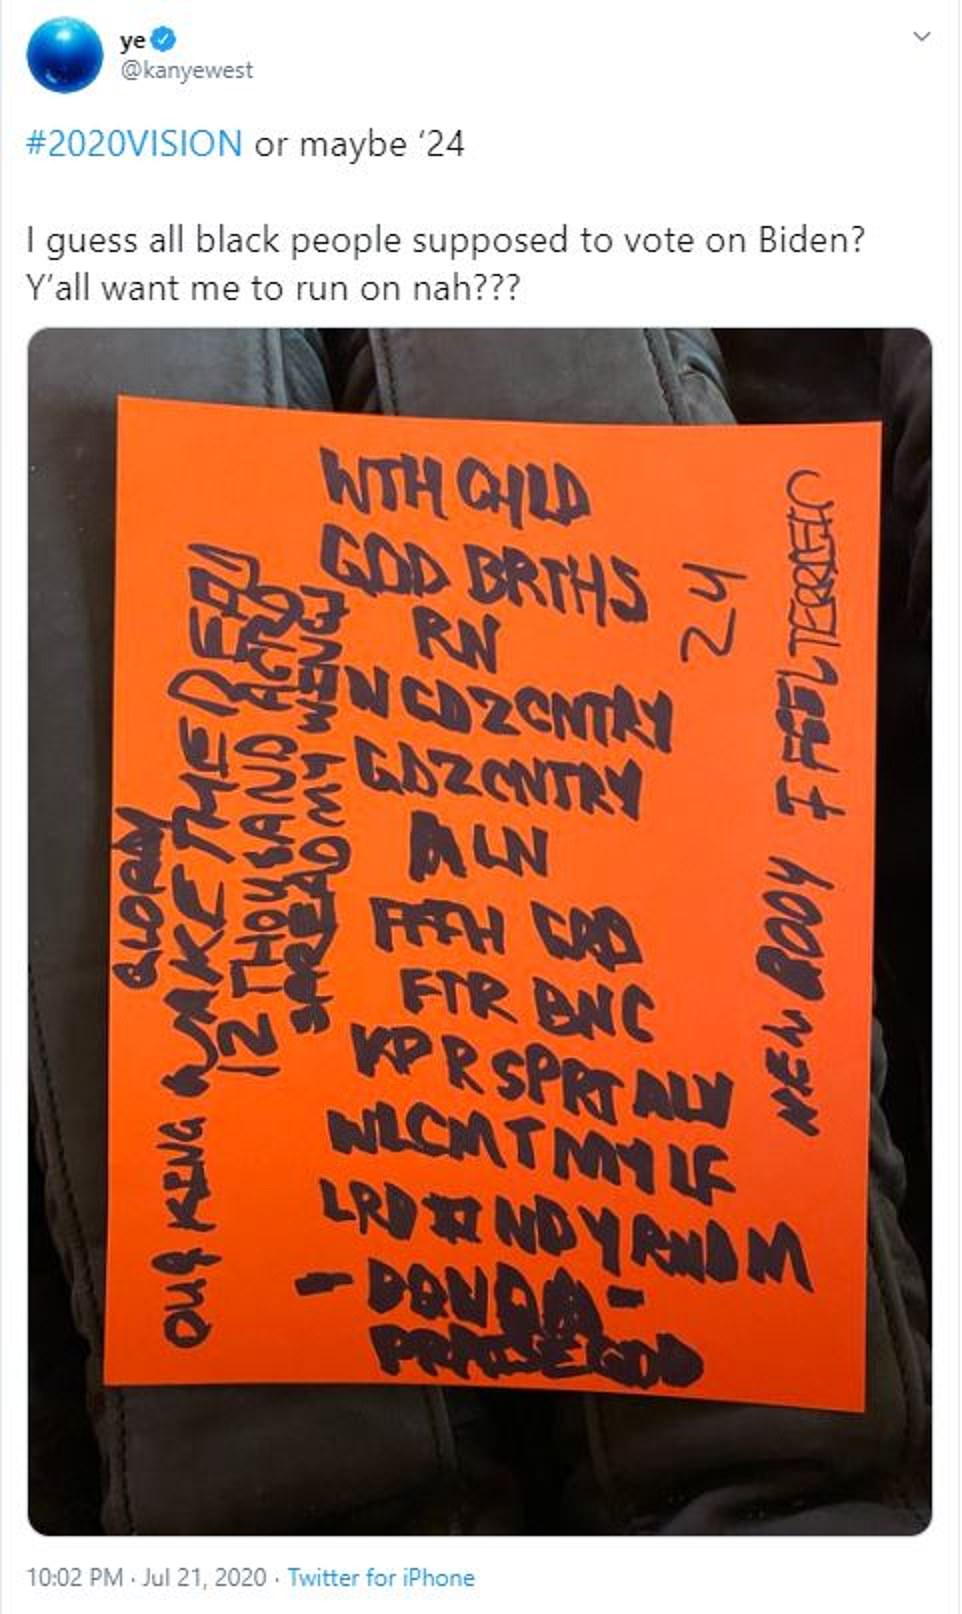 ye
@kanyewest
#2020VISION or maybe ‘24
I guess all black people supposed to vote on Biden?
Y’all want me to run on nah???
WTH CHLD
GOD BRTHS
RN
N GDZCNTRY
GDZCNTRY
ALN
FTH GOD
FTR BNC
KP R SPRT ALV
WLCM T MY LF
LRD I ND Y RND M
- DONDA -
PRAISE GOD
GLORY
OUR KING WAKE THE DEAD
12 THOUSAND ACRES
SPREAD MY WINGS
24
NEW BODY I FEEL TERRIFIC
10:02 PM · Jul 21, 2020 · Twitter for iPhone